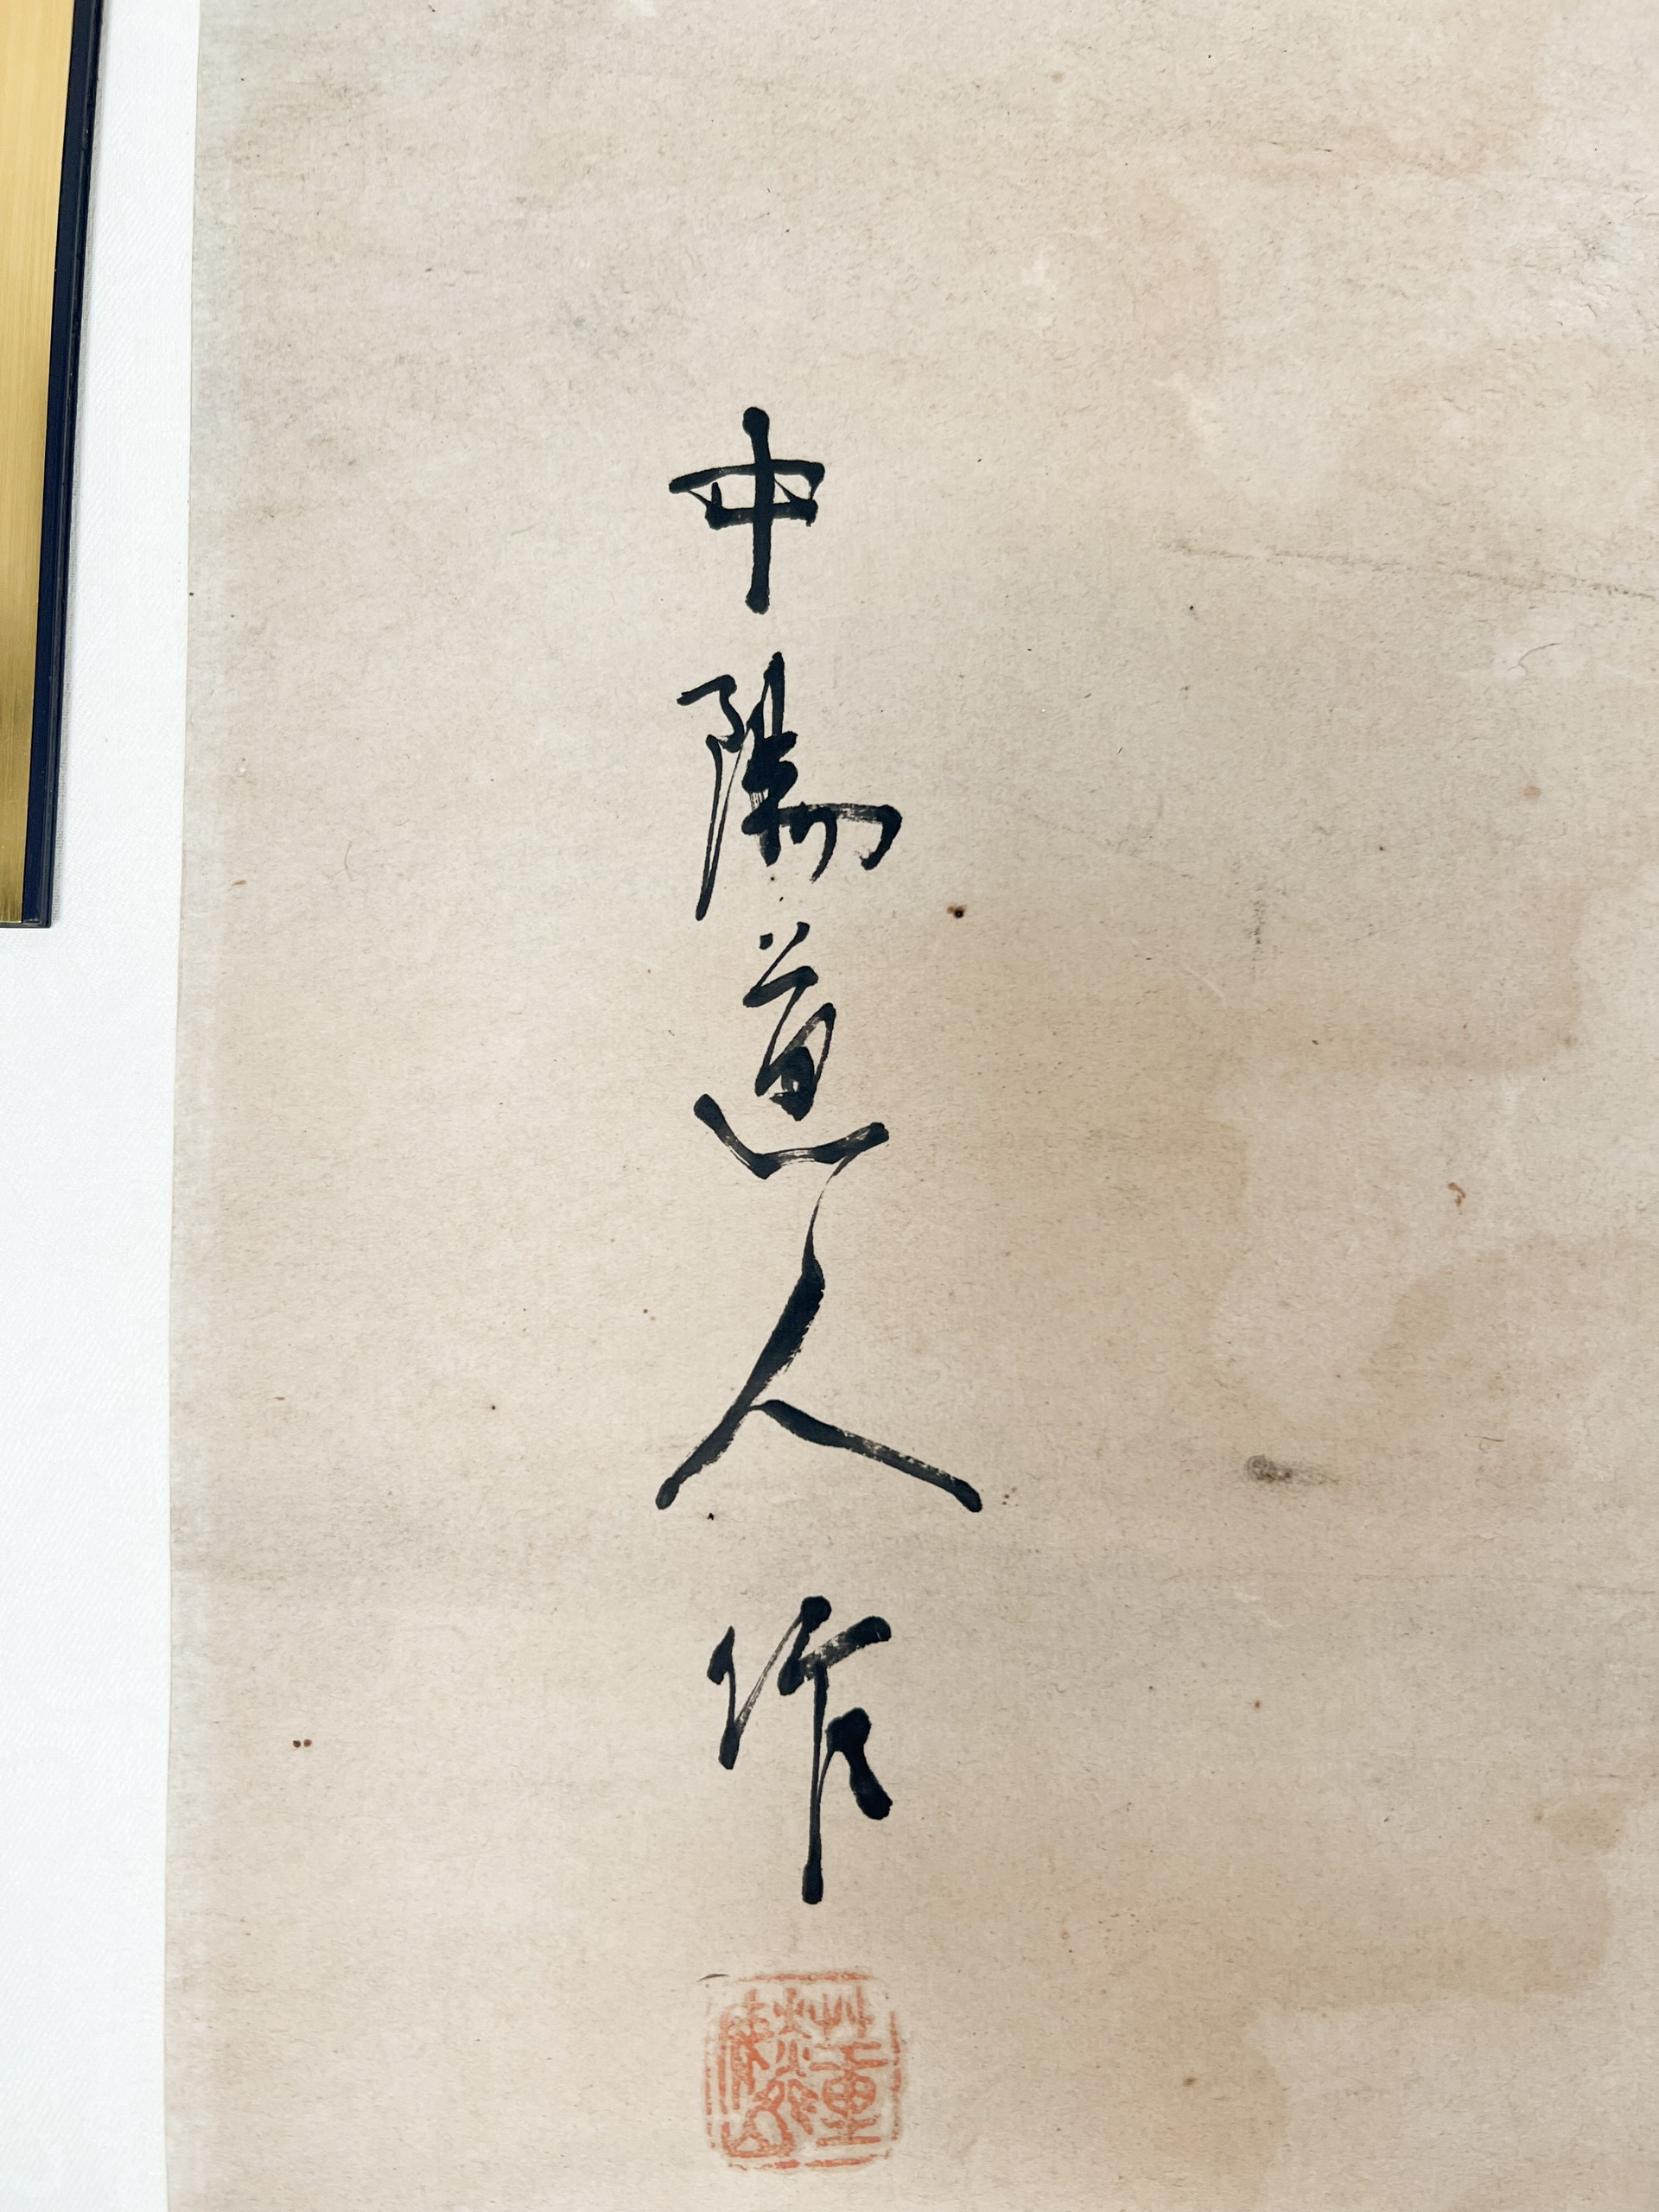 中陽道人作